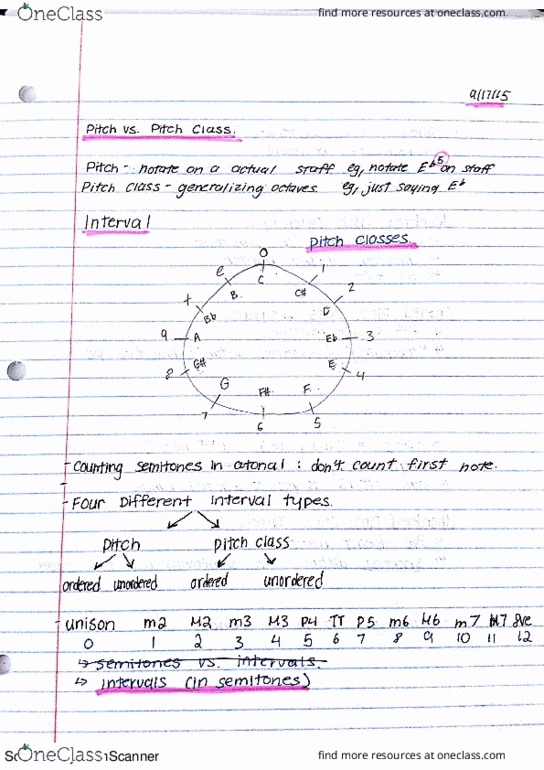 OneClass
find more resources at oneclass.com
9/17/15
Pitch vs. Pitch Class.
Pitch - notate on a actual staff eg, notate Eb5 on staff
Pitch class - generalizing octaves eg, just saying Eb
Interval
pitch classes
0
e
1
C
t
B
C#
2
Bb
D
9
A
Eb
3
8
G#
E
4
G
F#
F
7
6
5
- Counting semitones in atonal : don't count first note.
-
- Four Different interval types.
pitch pitch class
ordered unordered ordered unordered
- unison m2 M2 m3 M3 P4 TT P5 m6 M6 m7 M7 8ve
0 1 2 3 4 5 6 7 8 9 10 11 12
↳ semitones vs. intervals
↳ intervals (in semitones)
OneClass
Scanner
find more resources at oneclass.com